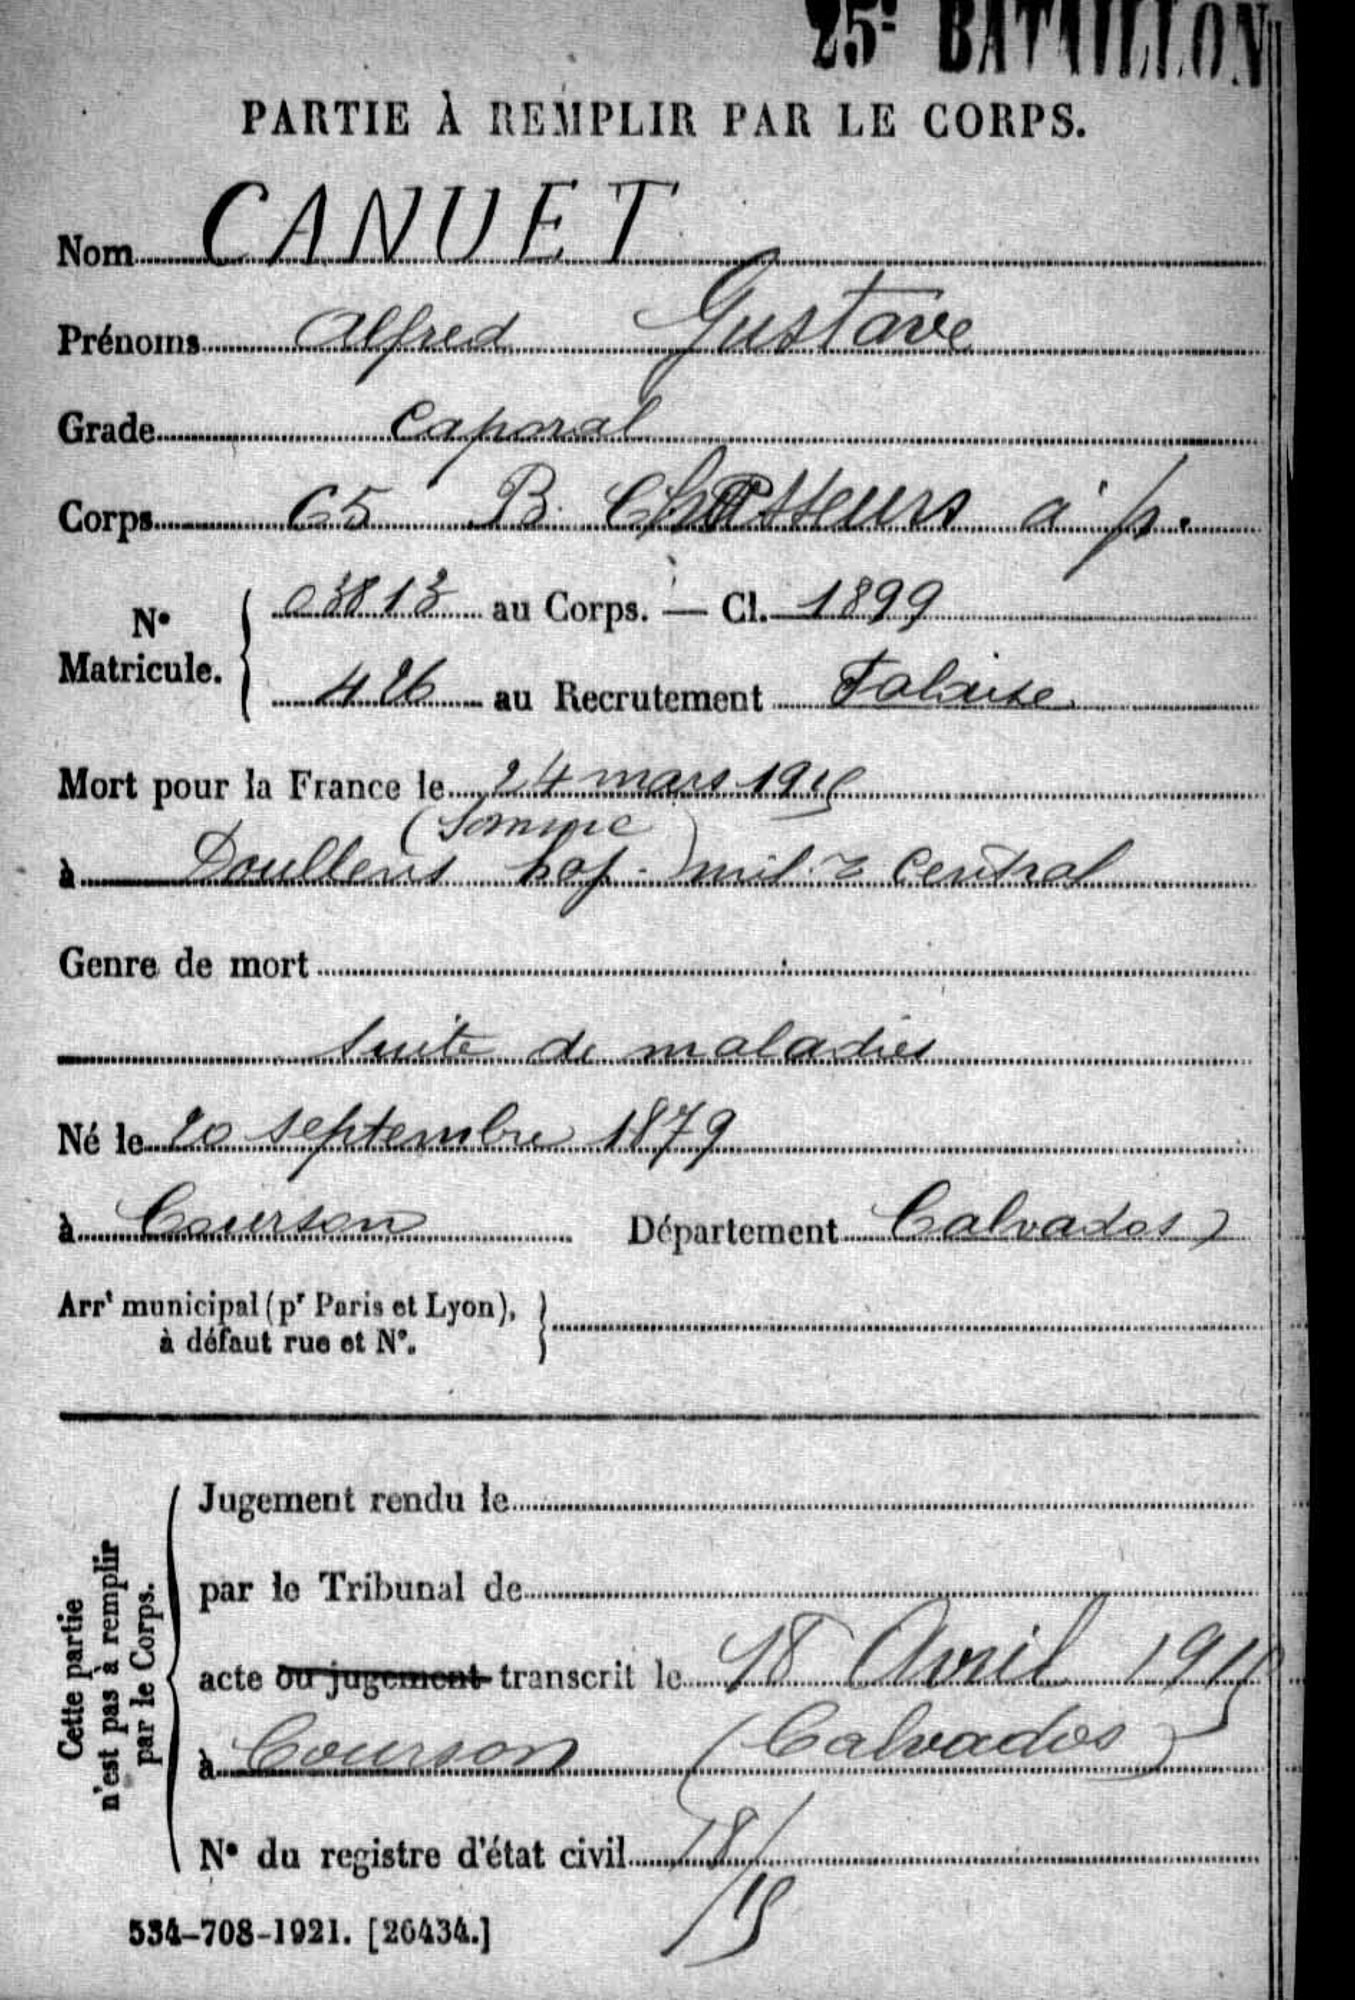 25e BATAILLON
PARTIE À REMPLIR PAR LE CORPS.
Nom CANUET
Prénoms Alfred Gustave
Grade Caporal
Corps 65 B. Chasseurs à p.
No Matricule. 03813 au Corps. — Cl. 1899
426 au Recrutement Falaise
Mort pour la France le 24 mars 1915
(Somme)
à Doullens hop. mil. re Central
Genre de mort
Suite de maladies
Né le 20 septembre 1879
à Courson Département Calvados
Arrt municipal (pr Paris et Lyon),
à défaut rue et No.
Cette partie
n'est pas à remplir
par le Corps.
Jugement rendu le
par le Tribunal de
acte ou jugement transcrit le 18 Avril 1915
à Courson (Calvados)
No du registre d'état civil 18/
/15
534-708-1921. [26434.]